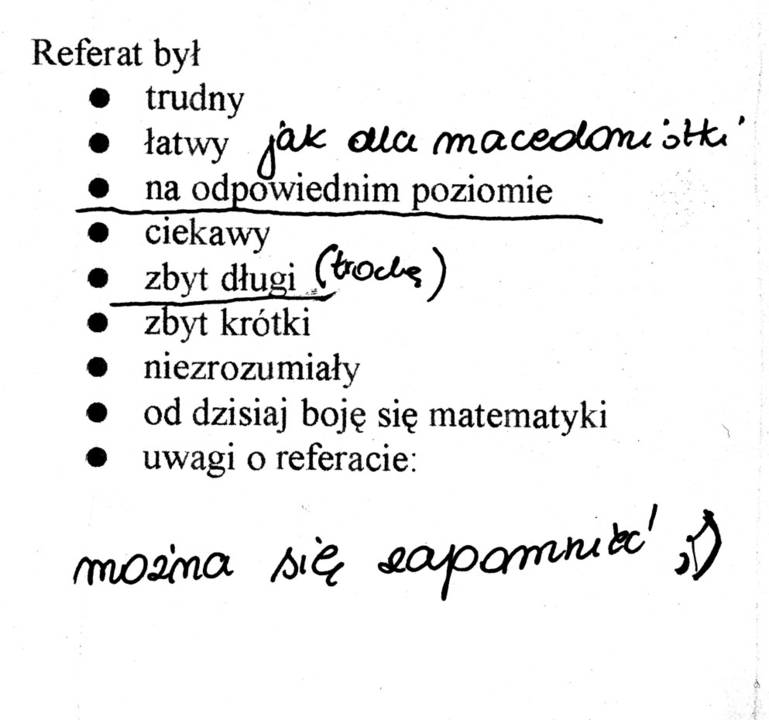 Referat był
● trudny
● łatwy jak dla macedoniistki
● na odpowiednim poziomie
● ciekawy
● zbyt długi (trochę)
● zbyt krótki
● niezrozumiały
● od dzisiaj boję się matematyki
● uwagi o referacie:
można się zapomnieć! ;)